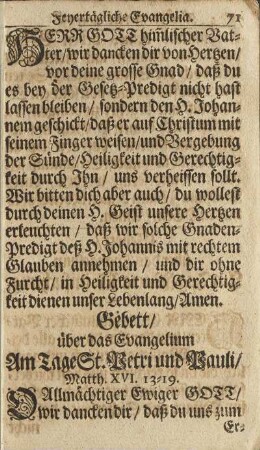 Feyertägliche Evangelia. 71
HERR GOTT him̃lischer Vat-
ter/ wir dancken dir von Hertzen/
vor deine grosse Gnad/ daß du
es bey der Gesetz-Predigt nicht hast
lassen bleiben/ sondern den H. Johan-
nem geschickt/ daß er auf Christum mit
seinem Finger weisen/ und Vergebung
der Sünde/ Heiligkeit und Gerechtig-
keit durch Ihn/ uns verheissen sollt.
Wir bitten dich aber auch/ du wollest
durch deinen H. Geist unsere Hertzen
erleuchten/ daß wir solche Gnaden-
Predigt deß H. Johannis mit rechtem
Glauben annehmen/ und dir ohne
Furcht/ in Heiligkeit und Gerechtig-
keit dienen unser Lebenlang/ Amen.
Gebett/
über das Evangelium
Am Tage St. Petri und Pauli/
Matth. XVI. 13-19.
O Allmächtiger Ewiger GOTT/
wir dancken dir/ daß du uns zum
Er-